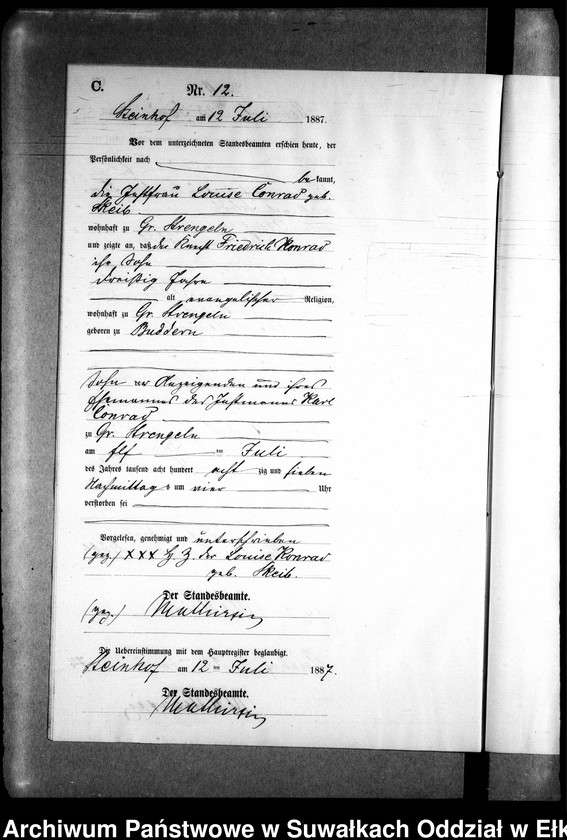 C.
Nr. 12.
Steinhof am 12 Juli 1887.
Vor dem unterzeichneten Standesbeamten erschien heute, der
Persönlichkeit nach
be kannt,
die Instfrau Louise Conrad geb.
Skeib
wohnhaft zu Gr. Strengeln
und zeigte an, daß der Knecht Friedrich Konrad
ihr Sohn
dreißig Jahre
alt evangelischer Religion,
wohnhaft zu Gr. Strengeln
geboren zu Buddern
Sohn der Anzeigenden und ihres
Ehemannes des Instmanns Karl
Conrad
zu Gr. Strengeln
am elf ten Juli
des Jahres tausend acht hundert acht zig und sieben
Nachmittags um vier Uhr
verstorben sei
Vorgelesen, genehmigt und unterschrieben
(gez.) XXX H. Z. der Louise Konrad
geb. Skeib.
Der Standesbeamte.
(gez.)
Die Uebereinstimmung mit dem Hauptregister beglaubigt.
Steinhof am 12 ten Juli 1887.
Der Standesbeamte.
Archiwum Państwowe w Suwałkach Oddział w Ełk